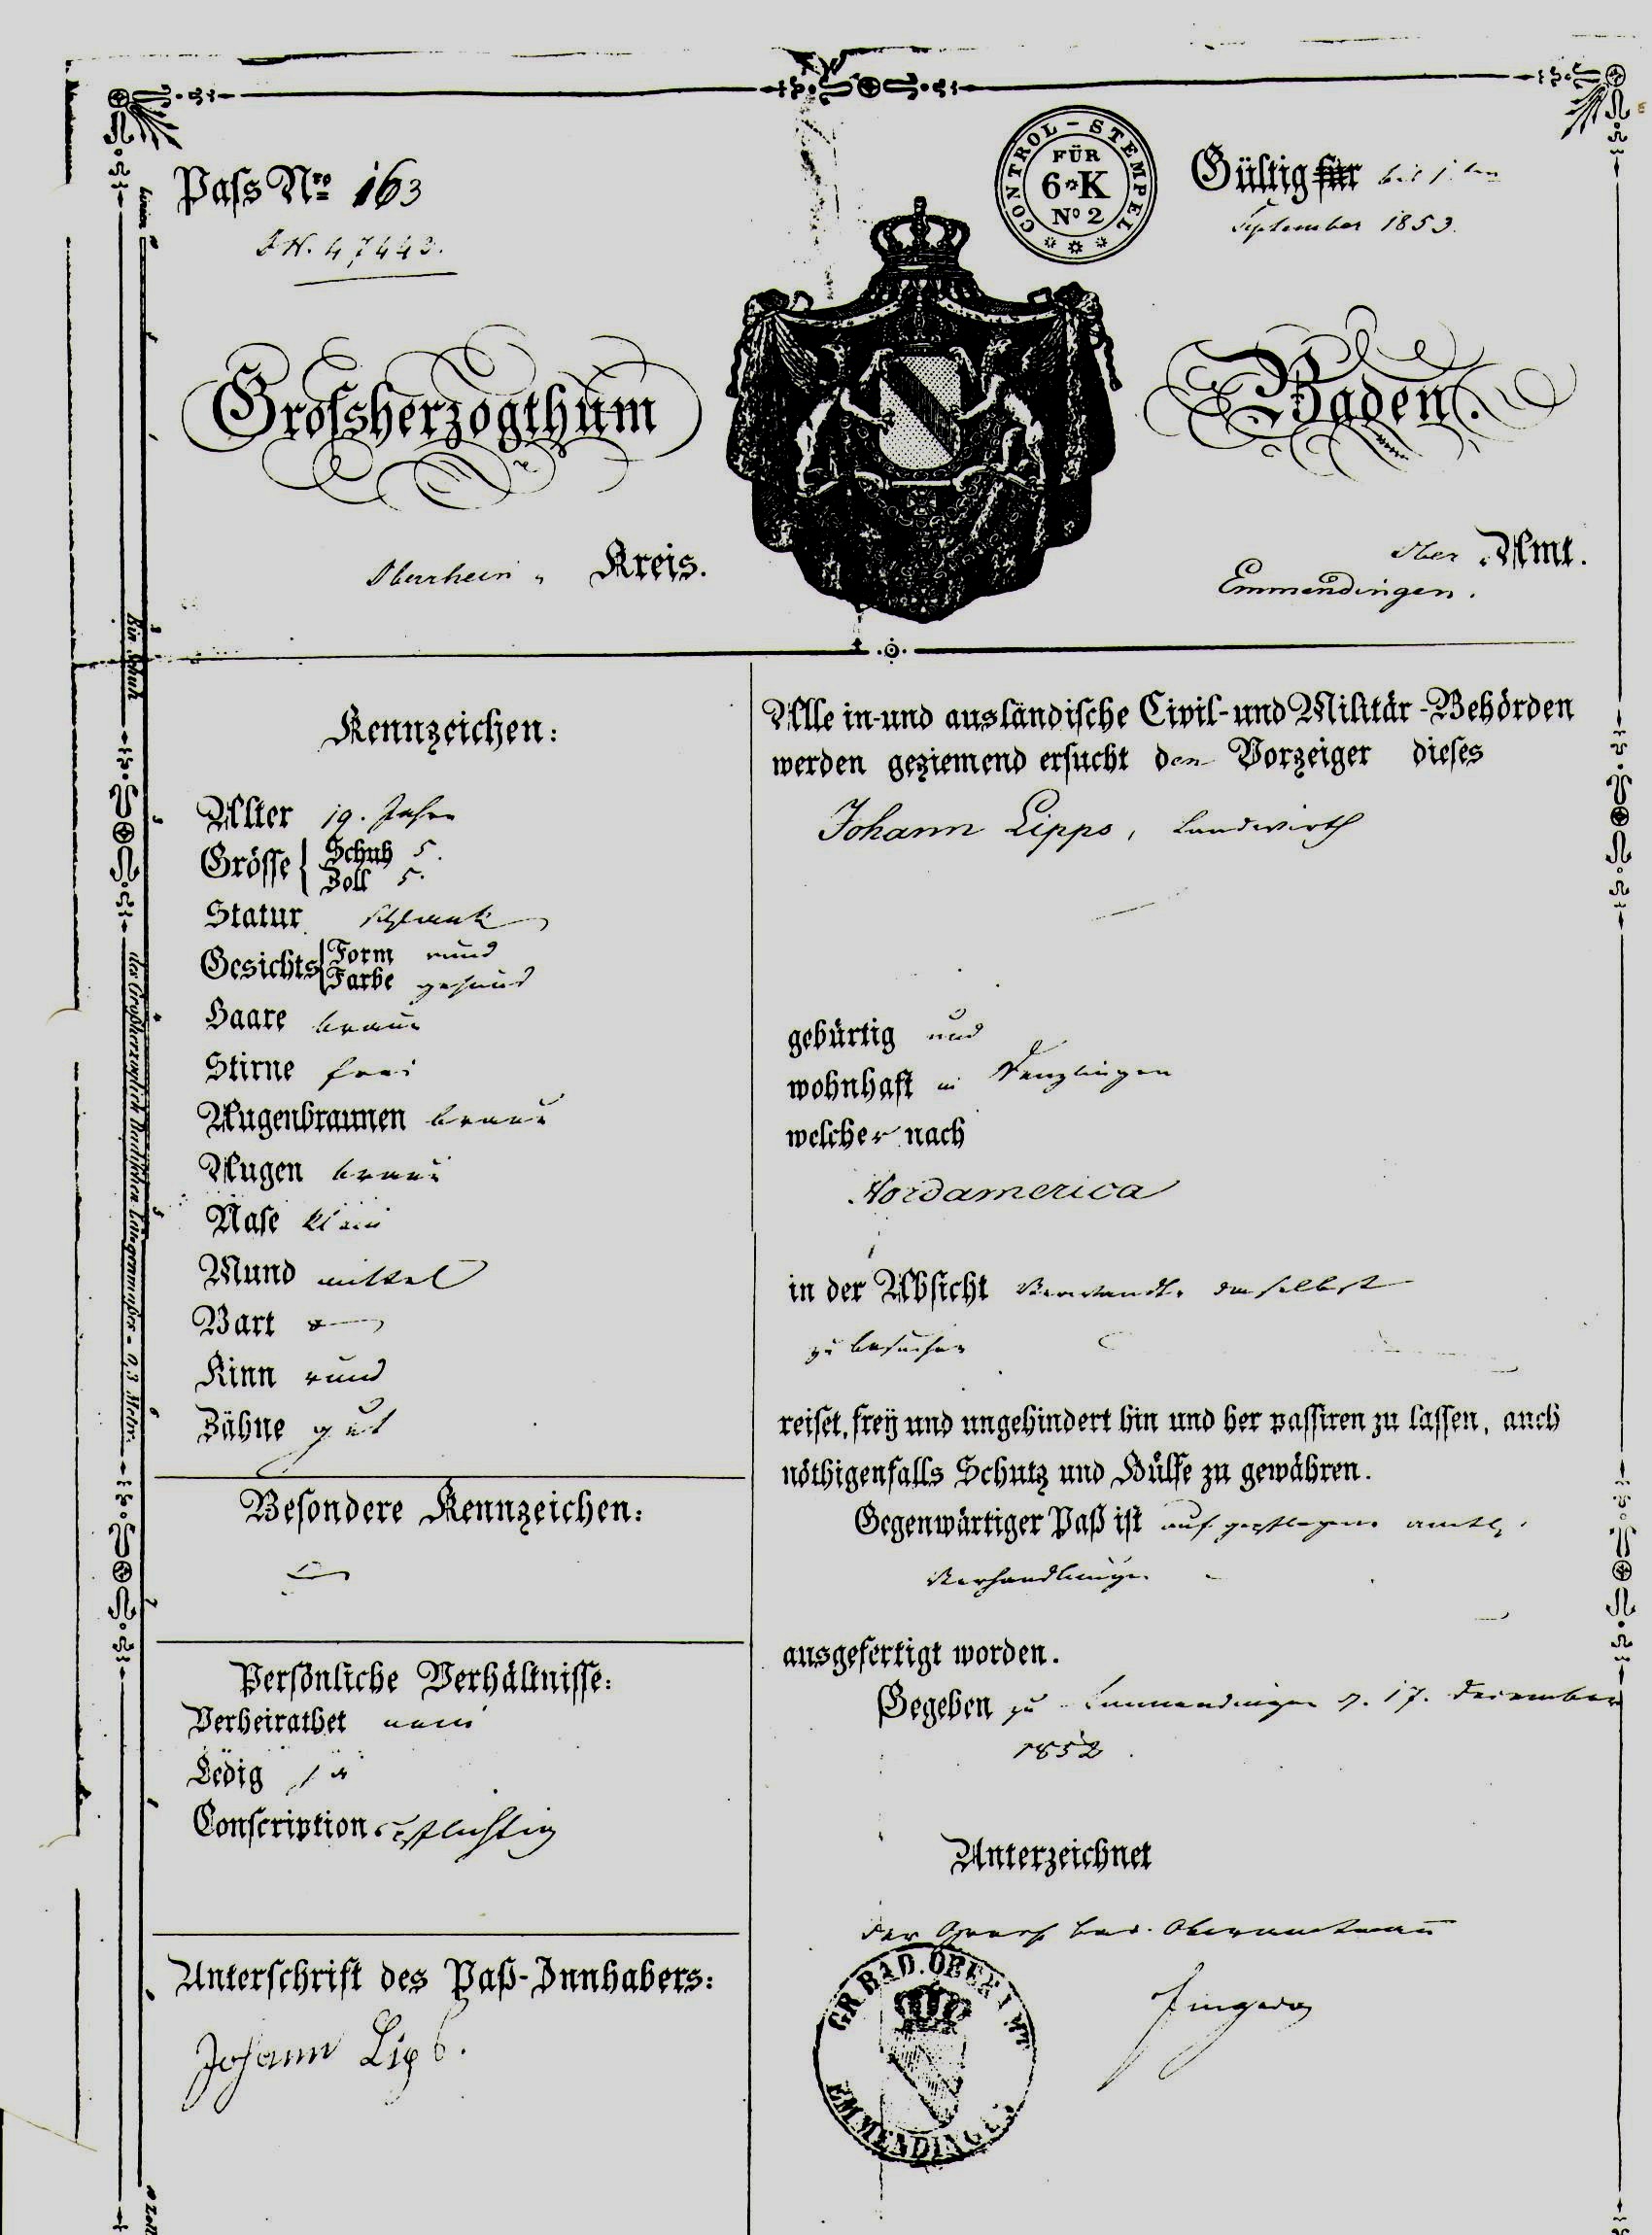 Paſs Nro 163
47443.
CONTROL-STEMPEL
FÜR
6 K
No 2
Gültig für bis 1ten
September 1853.
Groſsherzogthum Baden.
Oberrhein Kreis.
Ober Amt.
Emmendingen.
Kennzeichen:
Alter 19. Jahre
Gröſſe Schuh 5.
Zoll 5.
Statur schlank
Gesichts Form rund
Farbe gesund
Haare braun
Stirne frei
Augenbraunen braun
Augen braun
Naſe klein
Mund mittel
Bart
Kinn rund
Zähne gut
Beſondere Kennzeichen:
Perſönliche Verhältniſſe:
Verheirathet nein
Ledig ja
Conſcriptions pflichtig
Unterſchrift des Paß-Innhabers:
Johann Lips.
Alle in-und ausländiſche Civil-und Militär-Behörden
werden geziemend erſucht den Vorzeiger dieſes
Johann Lipps, Landwirth
gebürtig und
wohnhaft in Denzlingen
welcher nach
Nordamerica
in der Abſicht Verwandte daselbst
zu besuchen
reiſet, freÿ und ungehindert hin und her paſſiren zu laſſen, auch
nöthigenfalls Schutz und Hülfe zu gewähren.
Gegenwärtiger Paß iſt auf gepflogene amtl.
Verhandlungen
ausgefertigt worden.
Gegeben zu Emmendingen d. 17. Dezember
1852.
Unterzeichnet
der Gross. bad. Oberamtmann
GR.BAD.OBERAMT
EMMENDINGEN
Ein Schuh
des Großherzoglich Badiſchen Längenmaßes = 0,3 Meter.
Linien
10 Zoll